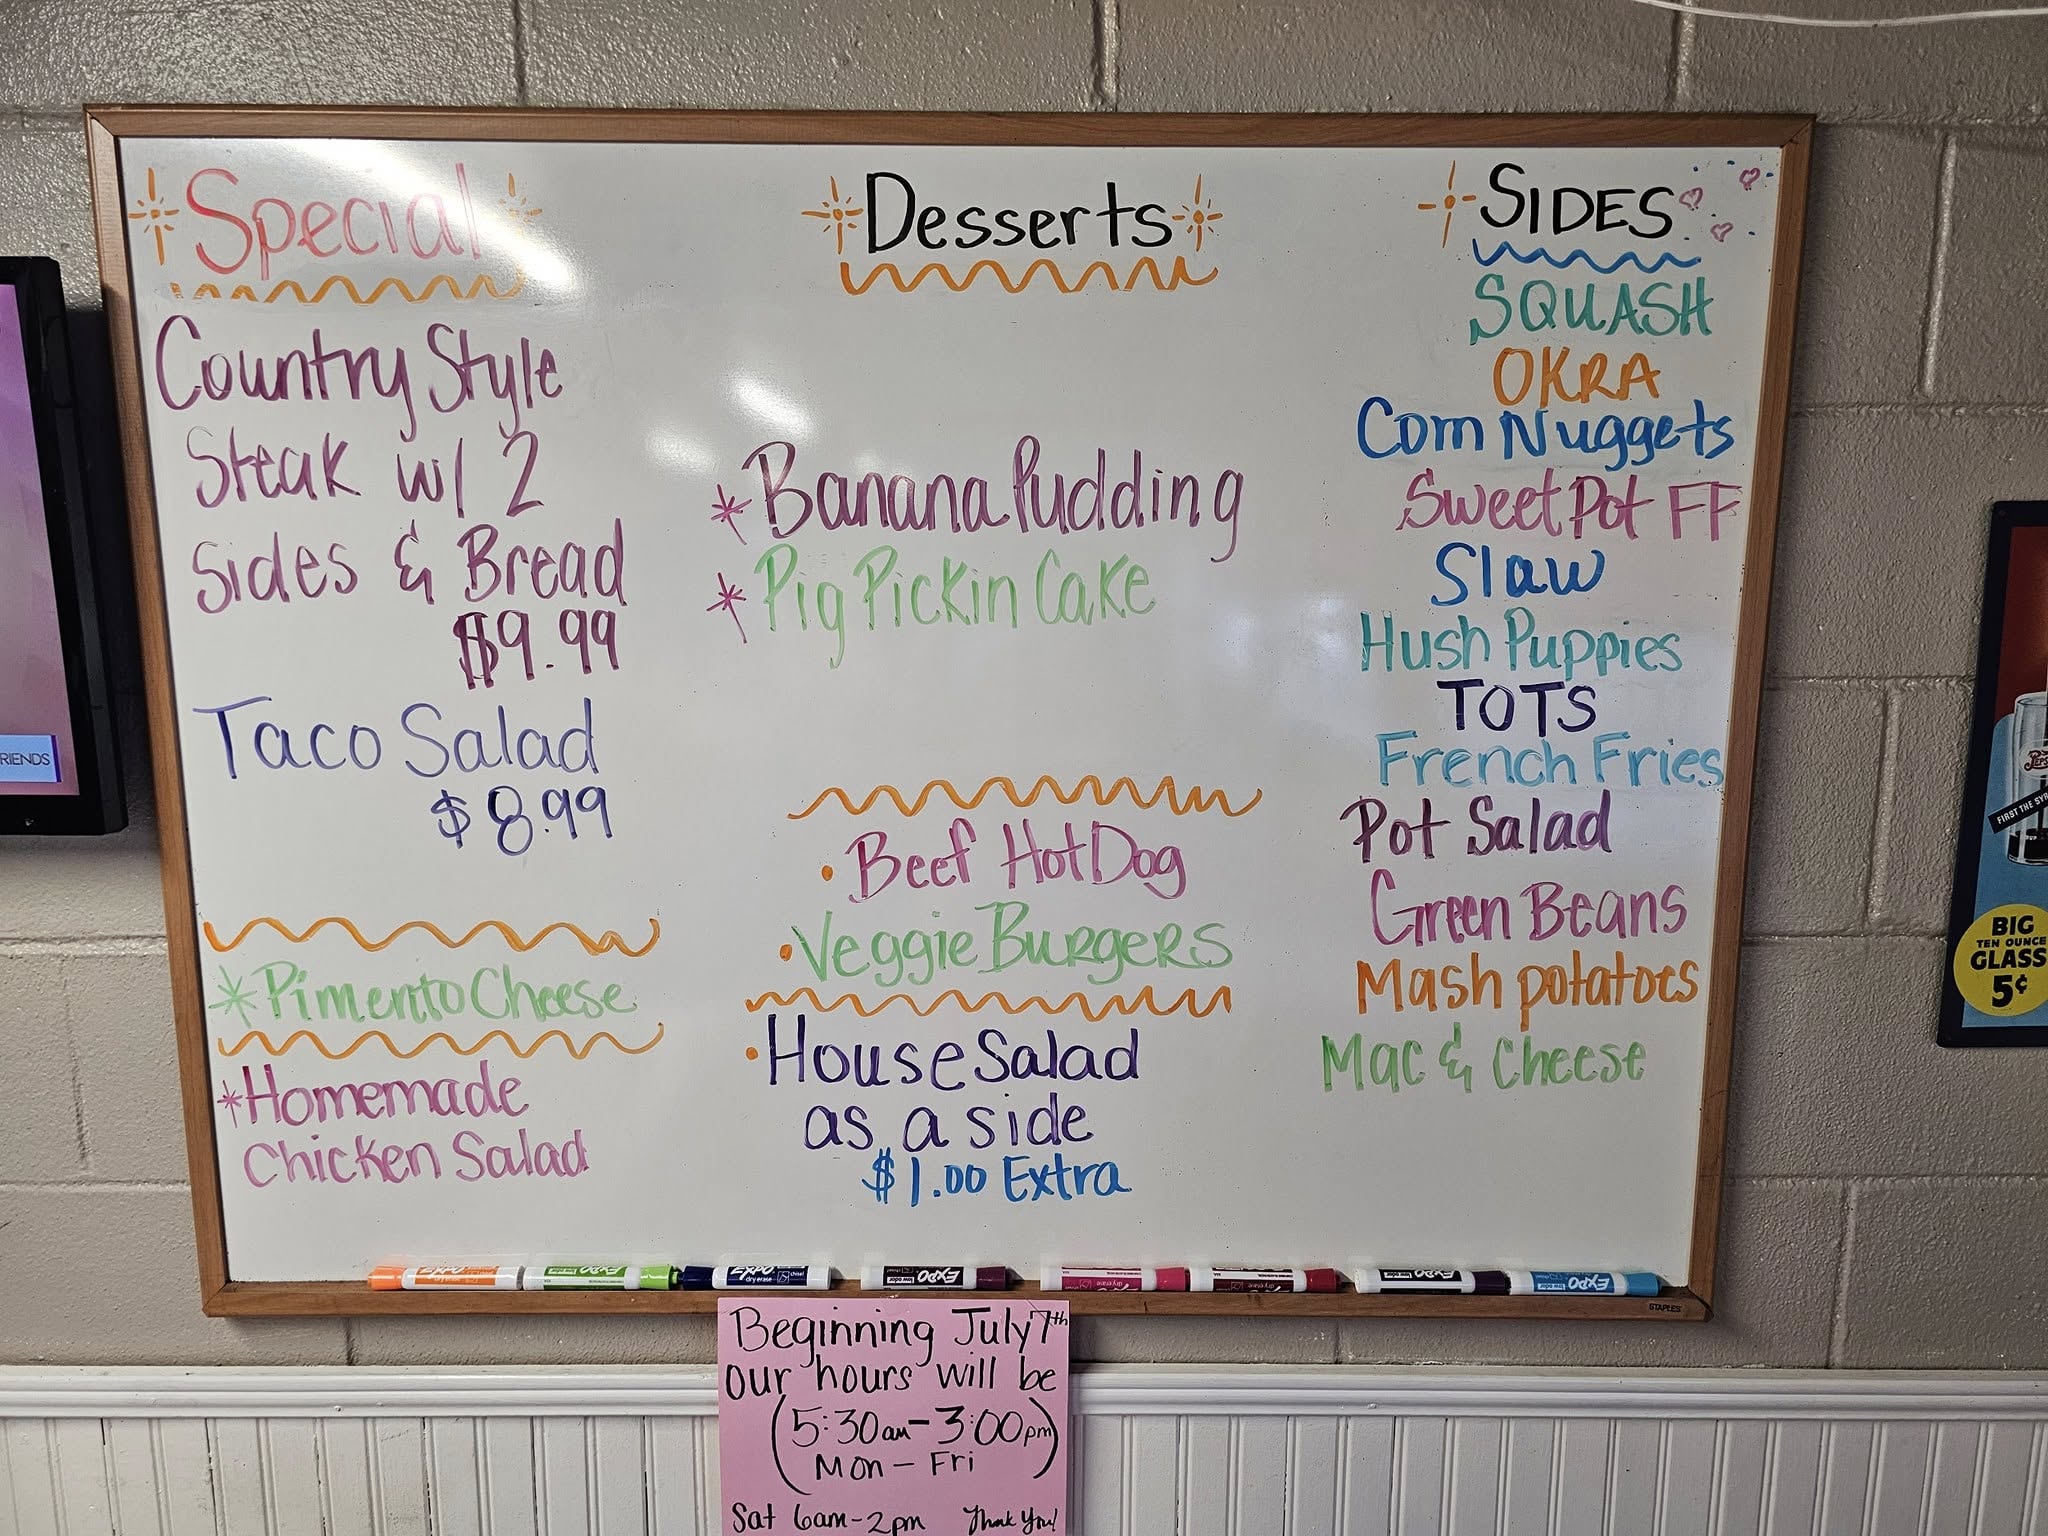 Special
Country Style
Steak w/ 2
Sides & Bread
$9.99
Taco Salad
$8.99
*Pimento Cheese
*Homemade
Chicken Salad
Desserts
*Banana Pudding
*Pig Pickin Cake
• Beef Hot Dog
• Veggie Burgers
• House Salad
as a side
$1.00 Extra
SIDES
SQUASH
OKRA
Corn Nuggets
Sweet Pot FF
Slaw
Hush Puppies
TOTS
French Fries
Pot Salad
Green Beans
Mash potatoes
Mac & Cheese
STAPLES
Beginning July 7th
our hours will be
(5:30am-3:00pm
Mon - Fri)
Sat 6am-2pm Thank You!
RIENDS
FIRST THE SY
BIG
TEN OUNCE
GLASS
5¢
EXPO